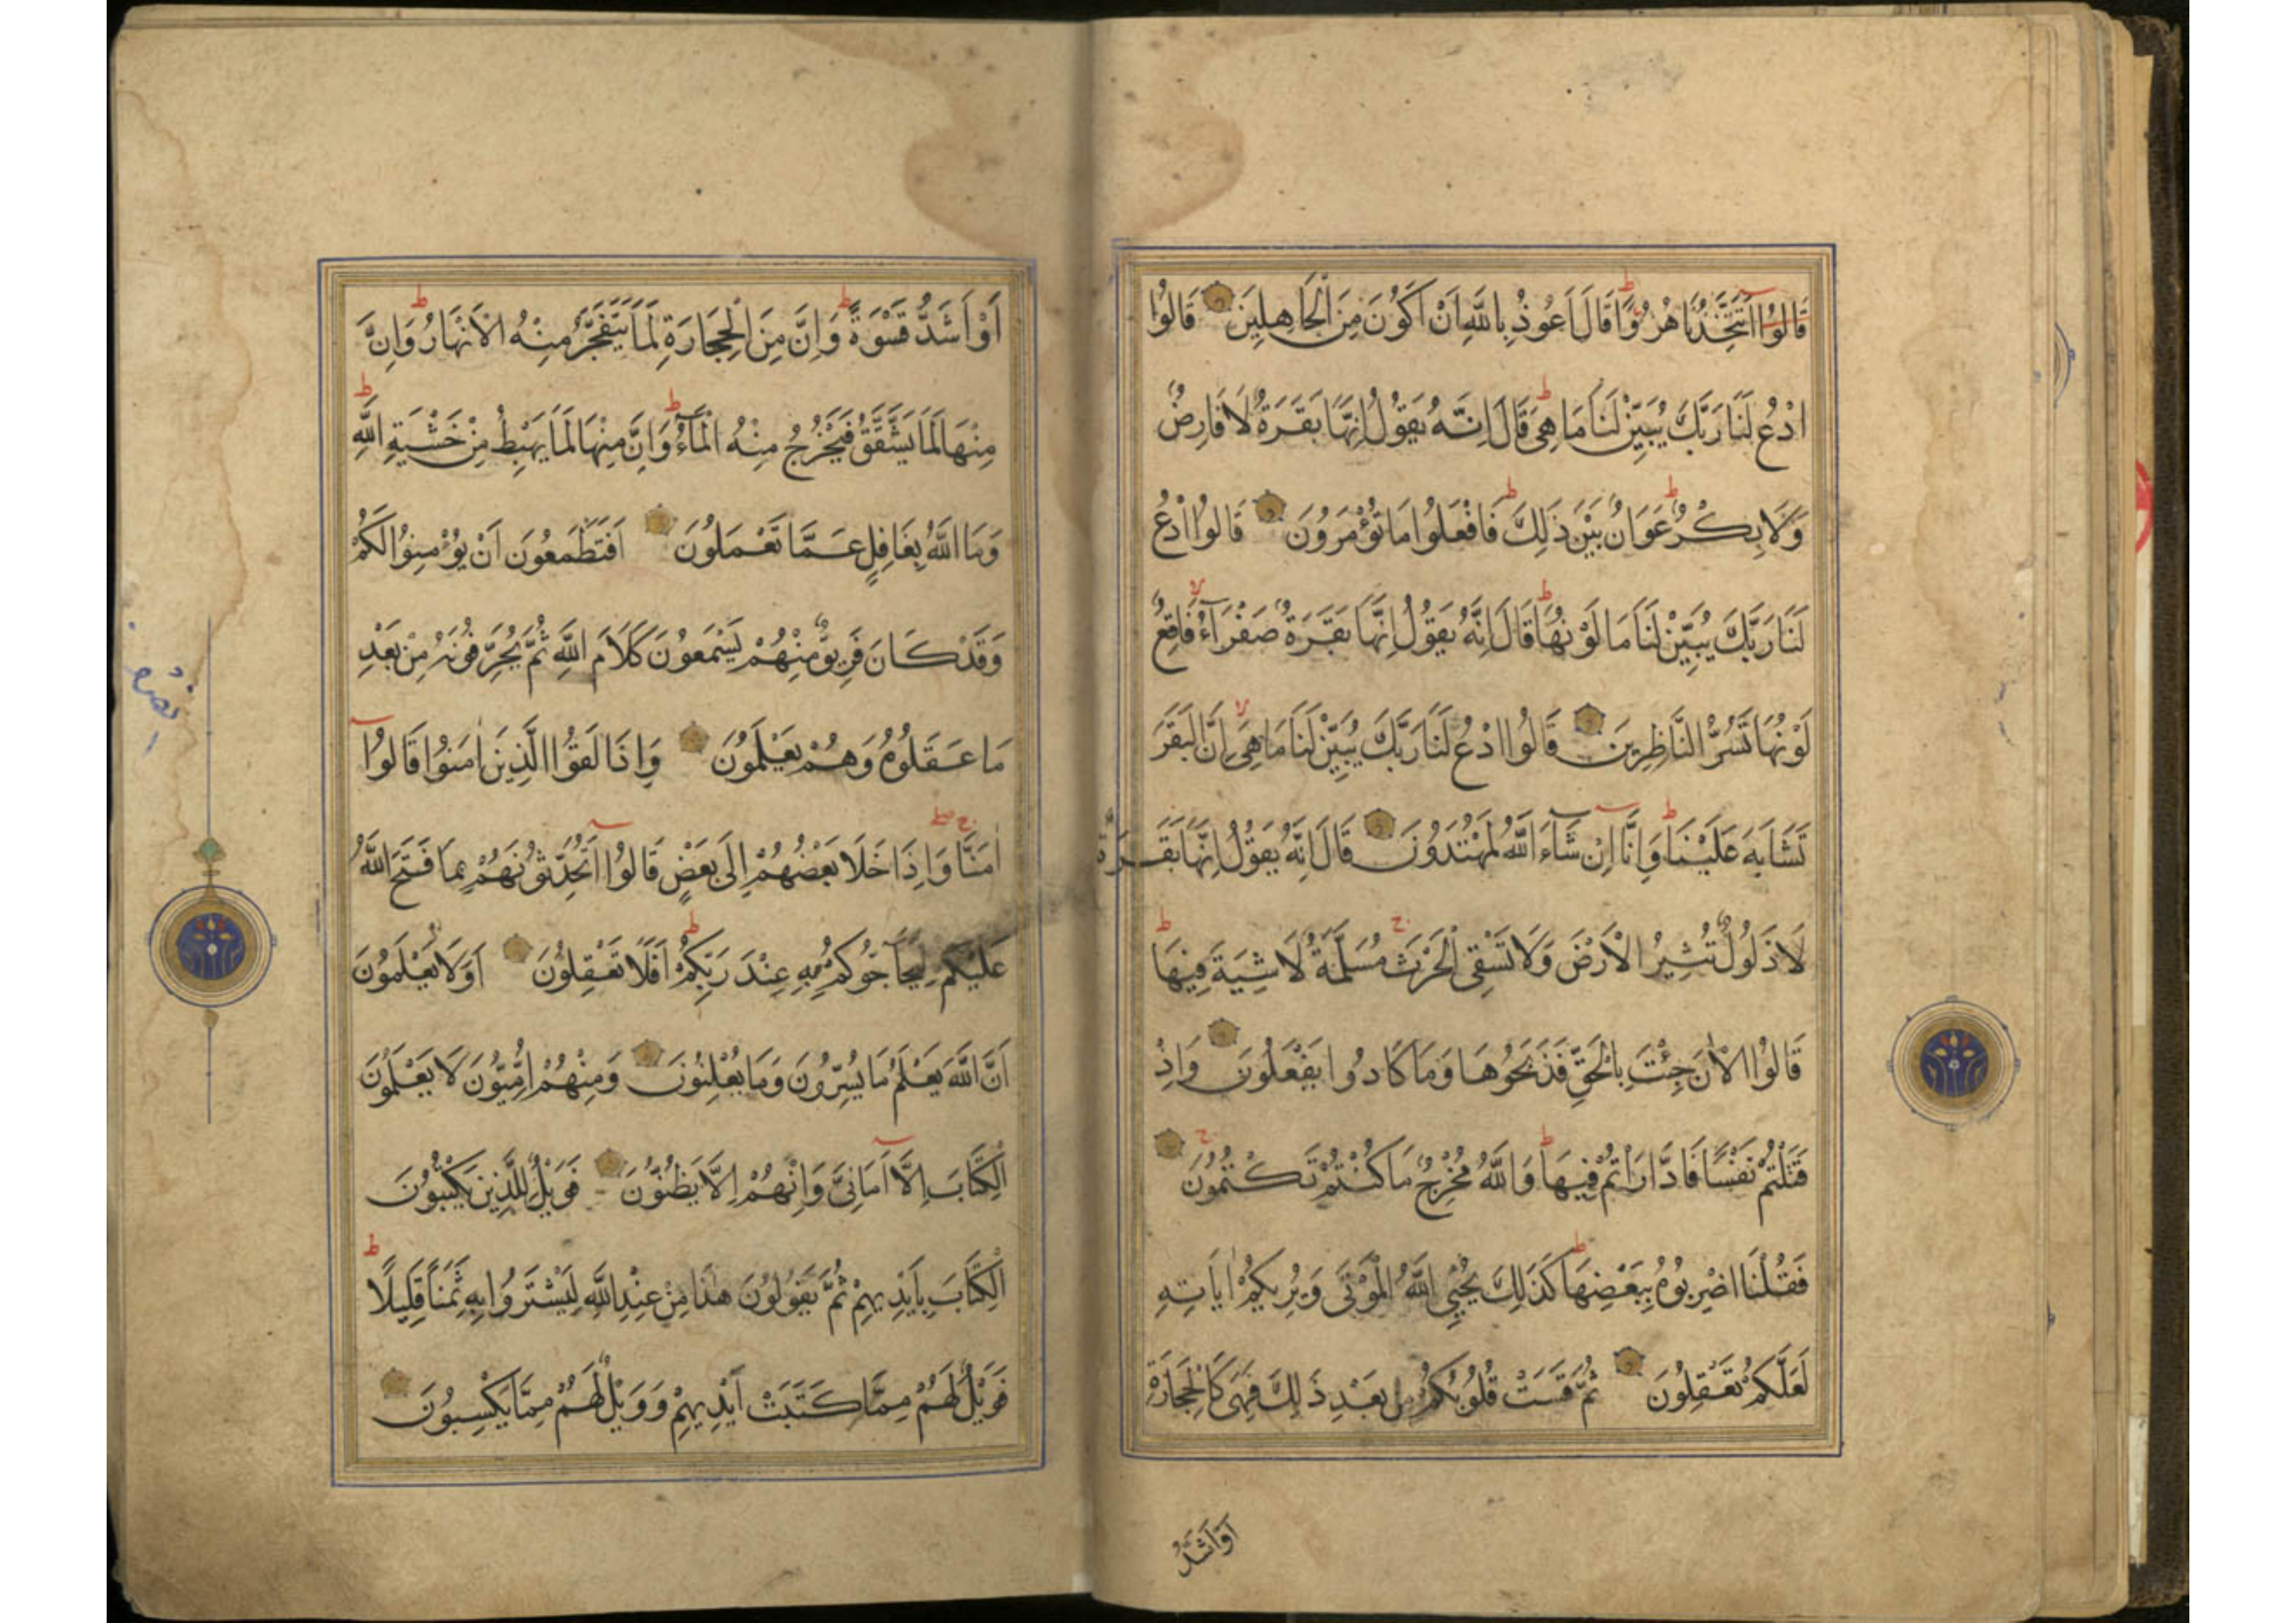 قَالُوا اَتَتَّخِذُنَا هُزُوًا قَالَ اَعُوذُ بِاللّٰهِ اَنْ اَكُونَ مِنَ الْجَاهِلِينَ قَالُوا
ادْعُ لَنَا رَبَّكَ يُبَيِّنْ لَنَا مَا هِيَ قَالَ اِنَّهُ يَقُولُ اِنَّهَا بَقَرَةٌ لَا فَارِضٌ
وَلَا بِكْرٌ عَوَانٌ بَيْنَ ذَلِكَ فَافْعَلُوا مَا تُؤْمَرُونَ قَالُوا ادْعُ
لَنَا رَبَّكَ يُبَيِّنْ لَنَا مَا لَوْنُهَا قَالَ اِنَّهُ يَقُولُ اِنَّهَا بَقَرَةٌ صَفْرَآءُ فَاقِعٌ
لَوْنُهَا تَسُرُّ النَّاظِرِينَ قَالُوا ادْعُ لَنَا رَبَّكَ يُبَيِّنْ لَنَا مَا هِيَ اِنَّ الْبَقَرَ
تَشَابَهَ عَلَيْنَا وَاِنَّا اِنْ شَآءَ اللّٰهُ لَمُهْتَدُونَ قَالَ اِنَّهُ يَقُولُ اِنَّهَا بَقَرَةٌ
لَا ذَلُولٌ تُثِيرُ الْاَرْضَ وَلَا تَسْقِى الْحَرْثَ مُسَلَّمَةٌ لَا شِيَةَ فِيهَا
قَالُوا الْاٰنَ جِئْتَ بِالْحَقِّ فَذَبَحُوهَا وَمَا كَادُوا يَفْعَلُونَ وَاِذْ
قَتَلْتُمْ نَفْسًا فَادَّارَاْتُمْ فِيهَا وَاللّٰهُ مُخْرِجٌ مَا كُنْتُمْ تَكْتُمُونَ
فَقُلْنَا اضْرِبُوهُ بِبَعْضِهَا كَذَلِكَ يُحْيِي اللّٰهُ الْمَوْتَى وَيُرِيكُمْ اٰيَاتِهِ
لَعَلَّكُمْ تَعْقِلُونَ ثُمَّ قَسَتْ قُلُوبُكُمْ مِنْ بَعْدِ ذَلِكَ فَهِيَ كَالْحِجَارَةِ
اَوْ اَشَدُّ
اَوْ اَشَدُّ قَسْوَةً وَاِنَّ مِنَ الْحِجَارَةِ لَمَا يَتَفَجَّرُ مِنْهُ الْاَنْهَارُ وَاِنَّ
مِنْهَا لَمَا يَشَّقَّقُ فَيَخْرُجُ مِنْهُ الْمَآءُ وَاِنَّ مِنْهَا لَمَا يَهْبِطُ مِنْ خَشْيَةِ اللّٰهِ
وَمَا اللّٰهُ بِغَافِلٍ عَمَّا تَعْمَلُونَ اَفَتَطْمَعُونَ اَنْ يُؤْمِنُوا لَكُمْ
وَقَدْ كَانَ فَرِيقٌ مِنْهُمْ يَسْمَعُونَ كَلَامَ اللّٰهِ ثُمَّ يُحَرِّفُونَهُ مِنْ بَعْدِ
مَا عَقَلُوهُ وَهُمْ يَعْلَمُونَ وَاِذَا لَقُوا الَّذِينَ اٰمَنُوا قَالُوا
اٰمَنَّا وَاِذَا خَلَا بَعْضُهُمْ اِلَى بَعْضٍ قَالُوا اَتُحَدِّثُونَهُمْ بِمَا فَتَحَ اللّٰهُ
عَلَيْكُمْ لِيُحَآجُّوكُمْ بِهِ عِنْدَ رَبِّكُمْ اَفَلَا تَعْقِلُونَ اَوَلَا يَعْلَمُونَ
اَنَّ اللّٰهَ يَعْلَمُ مَا يُسِرُّونَ وَمَا يُعْلِنُونَ وَمِنْهُمْ اُمِّيُّونَ لَا يَعْلَمُونَ
الْكِتَابَ اِلَّا اَمَانِيَّ وَاِنْ هُمْ اِلَّا يَظُنُّونَ فَوَيْلٌ لِلَّذِينَ يَكْتُبُونَ
الْكِتَابَ بِاَيْدِيهِمْ ثُمَّ يَقُولُونَ هٰذَا مِنْ عِنْدِ اللّٰهِ لِيَشْتَرُوا بِهِ ثَمَنًا قَلِيلًا
فَوَيْلٌ لَهُمْ مِمَّا كَتَبَتْ اَيْدِيهِمْ وَوَيْلٌ لَهُمْ مِمَّا يَكْسِبُونَ